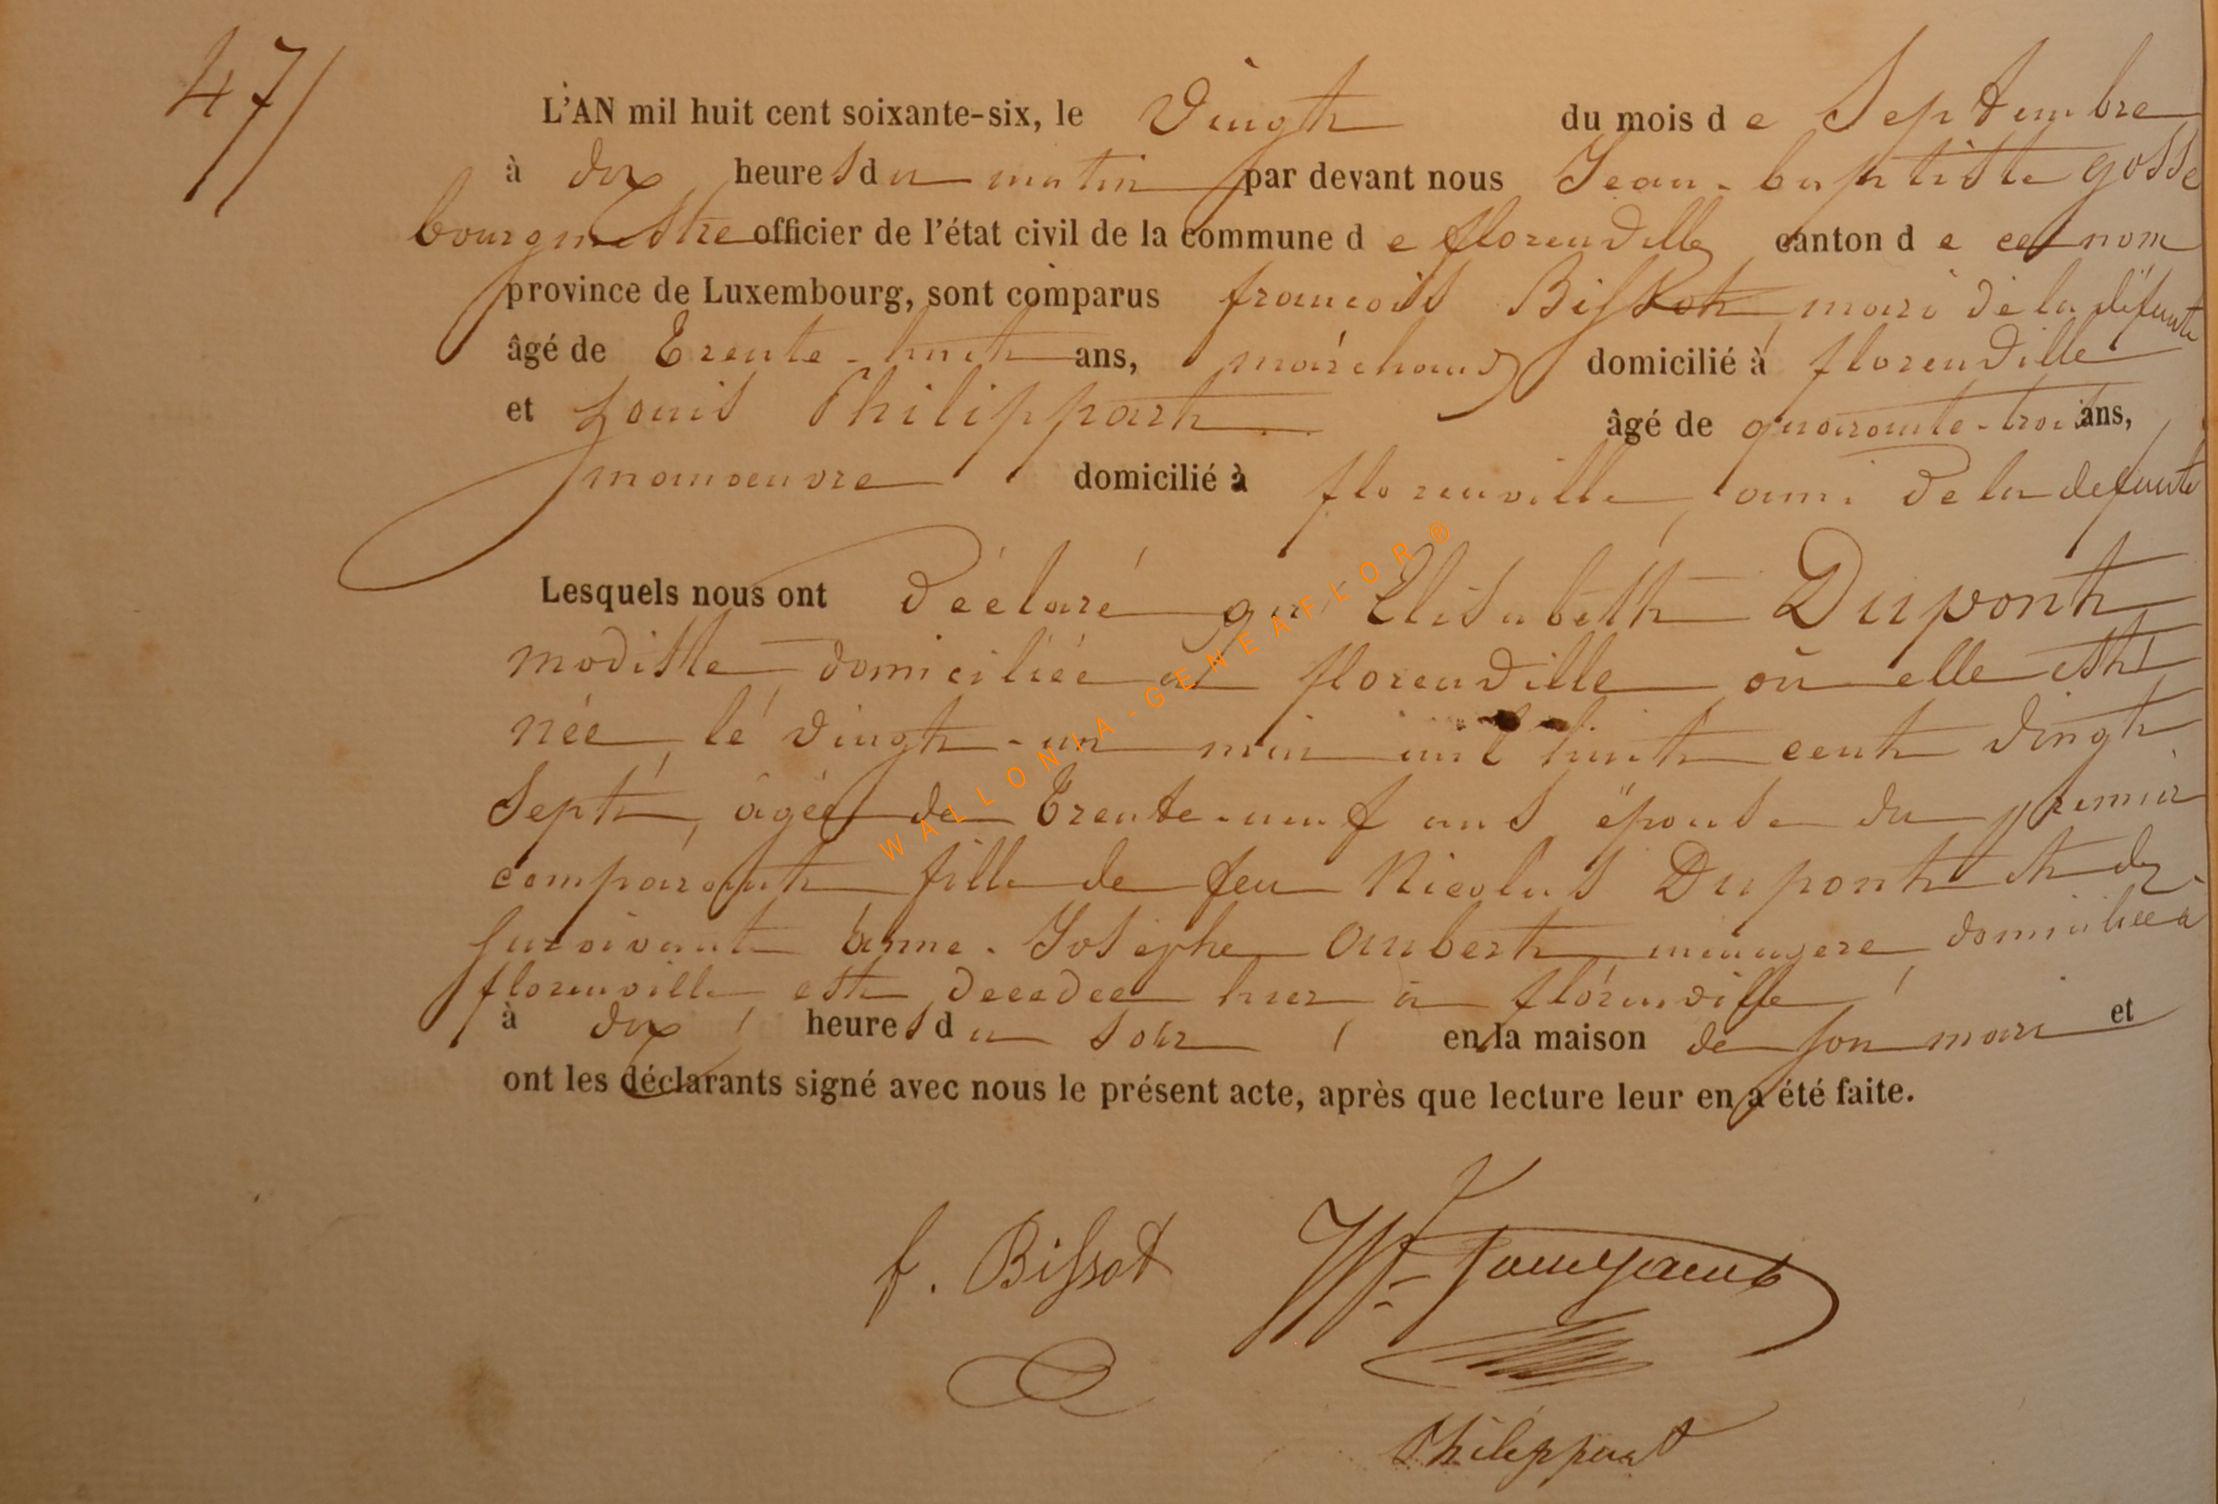 47/
L'AN mil huit cent soixante-six, le Vingt du mois de Septembre
à dix heures du matin par devant nous Jean-baptiste gosse
bourgmestre officier de l'état civil de la commune de florenville canton de ce nom
province de Luxembourg, sont comparus francois Bissot mari de la défunte
âgé de Trente-huit ans, marchand domicilié à florenville
et Louis Philippart âgé de quarante-trois ans,
manoeuvre domicilié à florenville, ami de la defunte
Lesquels nous ont déclaré que Elisabeth Dupont
modiste domiciliée à florenville où elle est
née, le vingt-un mai mil huit cent vingt
sept, âgée de Trente-neuf ans épouse du premier
comparant fille de feu Nicolas Dupont et de
survivante anne-Josephe Aubert menagere domiciliée à
florenville est decedee hier à florenville,
à dix heures du soir, en la maison de son mari et
ont les déclarants signé avec nous le présent acte, après que lecture leur en a été faite.
f. Bissot
Philippart
WALLONIA-GENEAFLOR®